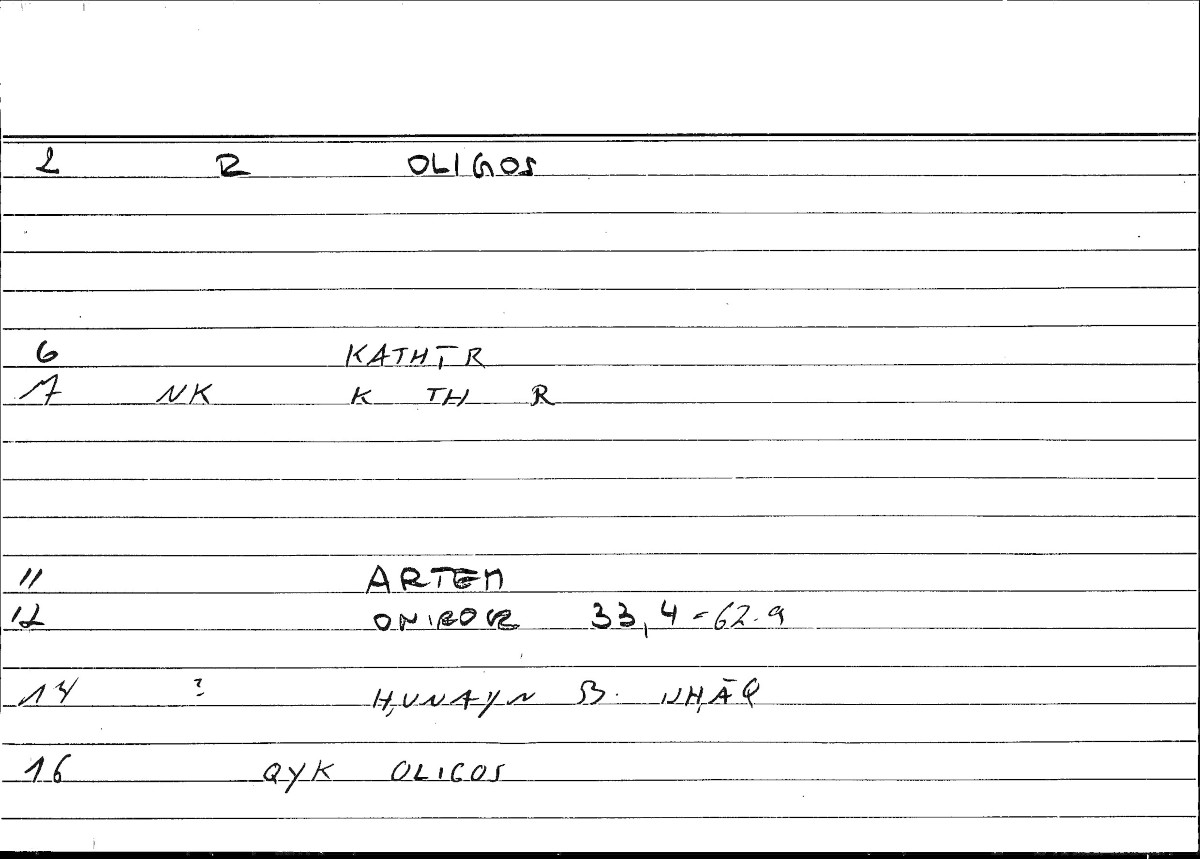 2 R OLIGOS
6 KATHĪR
7 NK K TH R
11 ARTEM
12 ONIROCR 33,4 = 62.9
14 ? ḤUNAYN B. ISḤĀQ
16 QYK OLIGOS